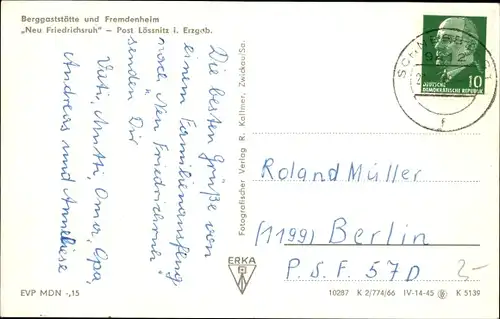 Berggaststätte und Fremdenheim
„Neu Friedrichsruh" – Post Lössnitz i. Erzgeb.
Die besten Grüße von
einem Familienausflug
nach „Neu Friedrichsruh"
senden Dir
Vati, Mutti, Oma, Opa,
Andreas und Anneliese
Fotografischer Verlag R. Kallmer, Zwickau/Sa.
SCHNEEBERG
9412
10
DEUTSCHE
DEMOKRATISCHE REPUBLIK
f
Roland Müller
(1199) Berlin
P.S.F. 57D
2-
ERKA
EVP MDN -,15
10287 K 2/774/66 IV-14-45 K 5139